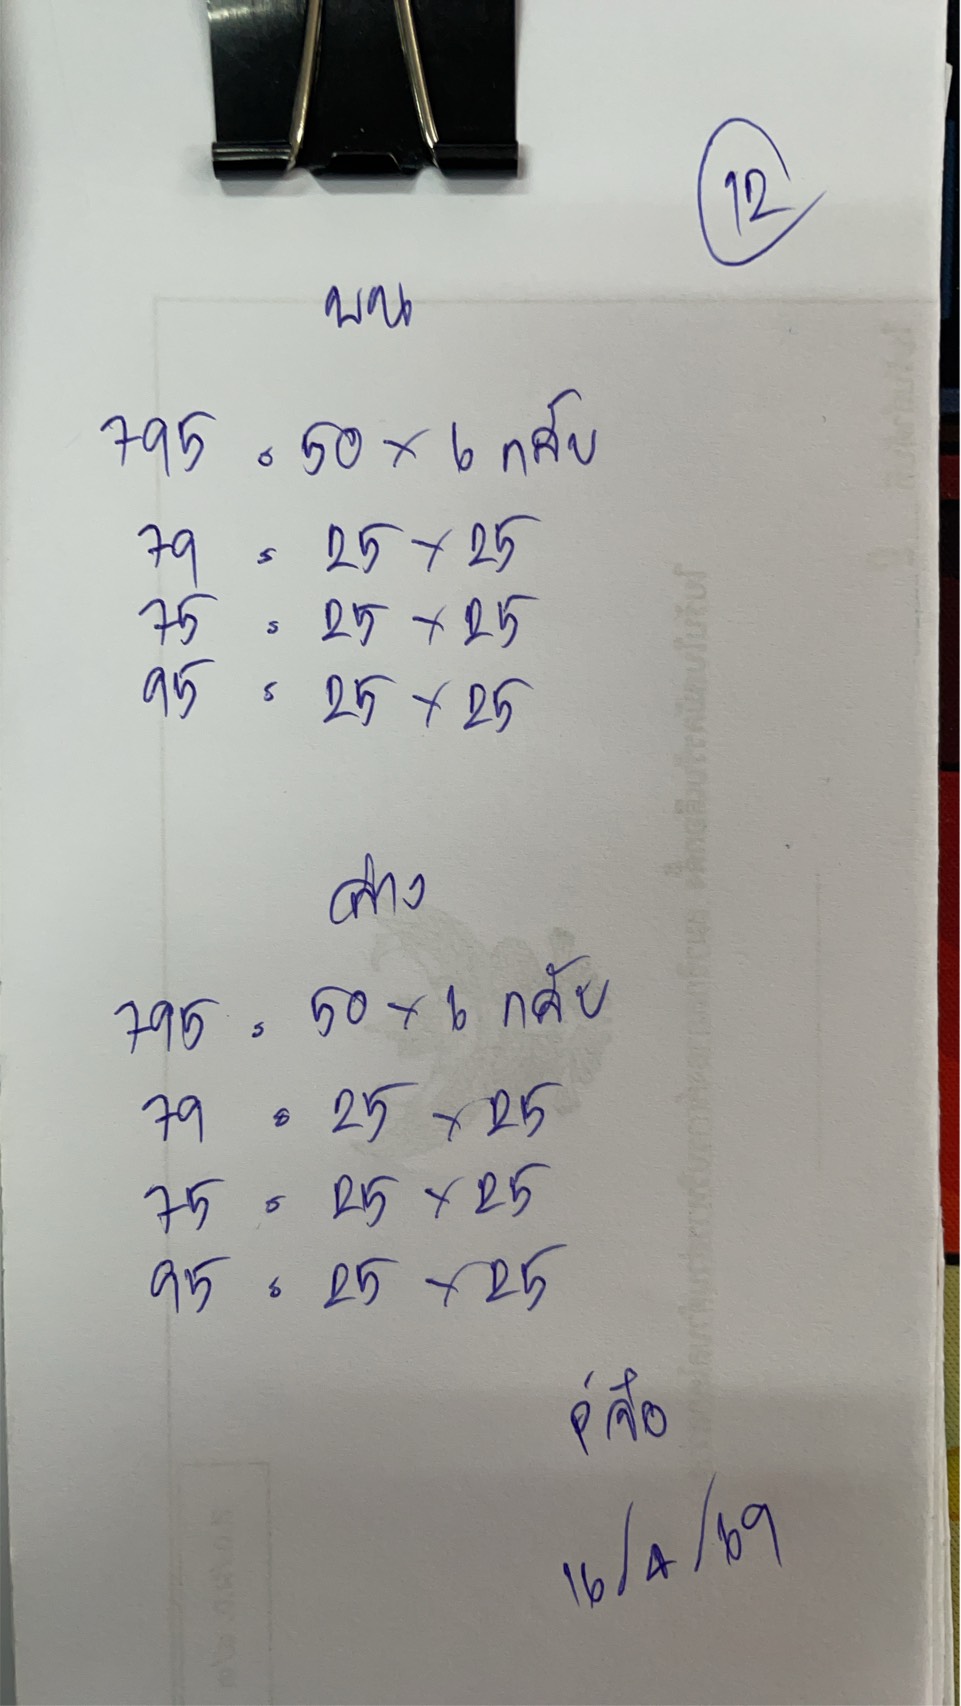 12
บน
795 = 50 × 6 กลับ
79 = 25 × 25
75 = 25 × 25
95 = 25 × 25
ล่าง
795 = 50 × 6 กลับ
79 = 25 × 25
75 = 25 × 25
95 = 25 × 25
16/4/69